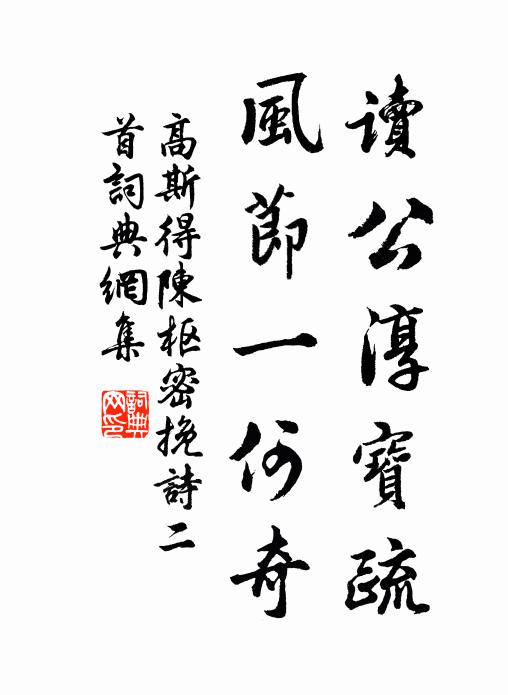 讀公淳寶疏
風節一何奇
高斯得陳枢密挽詩二
首詞典網集
詞典
网印